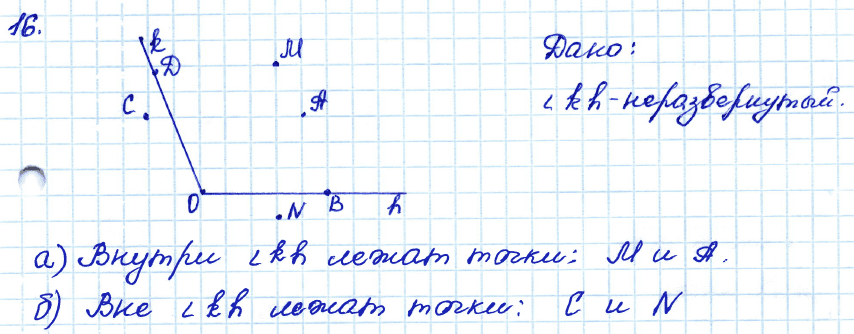 16.
k
D
M
Дано:
C
A
∠kh - неразвернутый.
O
N
B
h
а) Внутри ∠kh лежат точки: M и A.
б) Вне ∠kh лежат точки: C и N